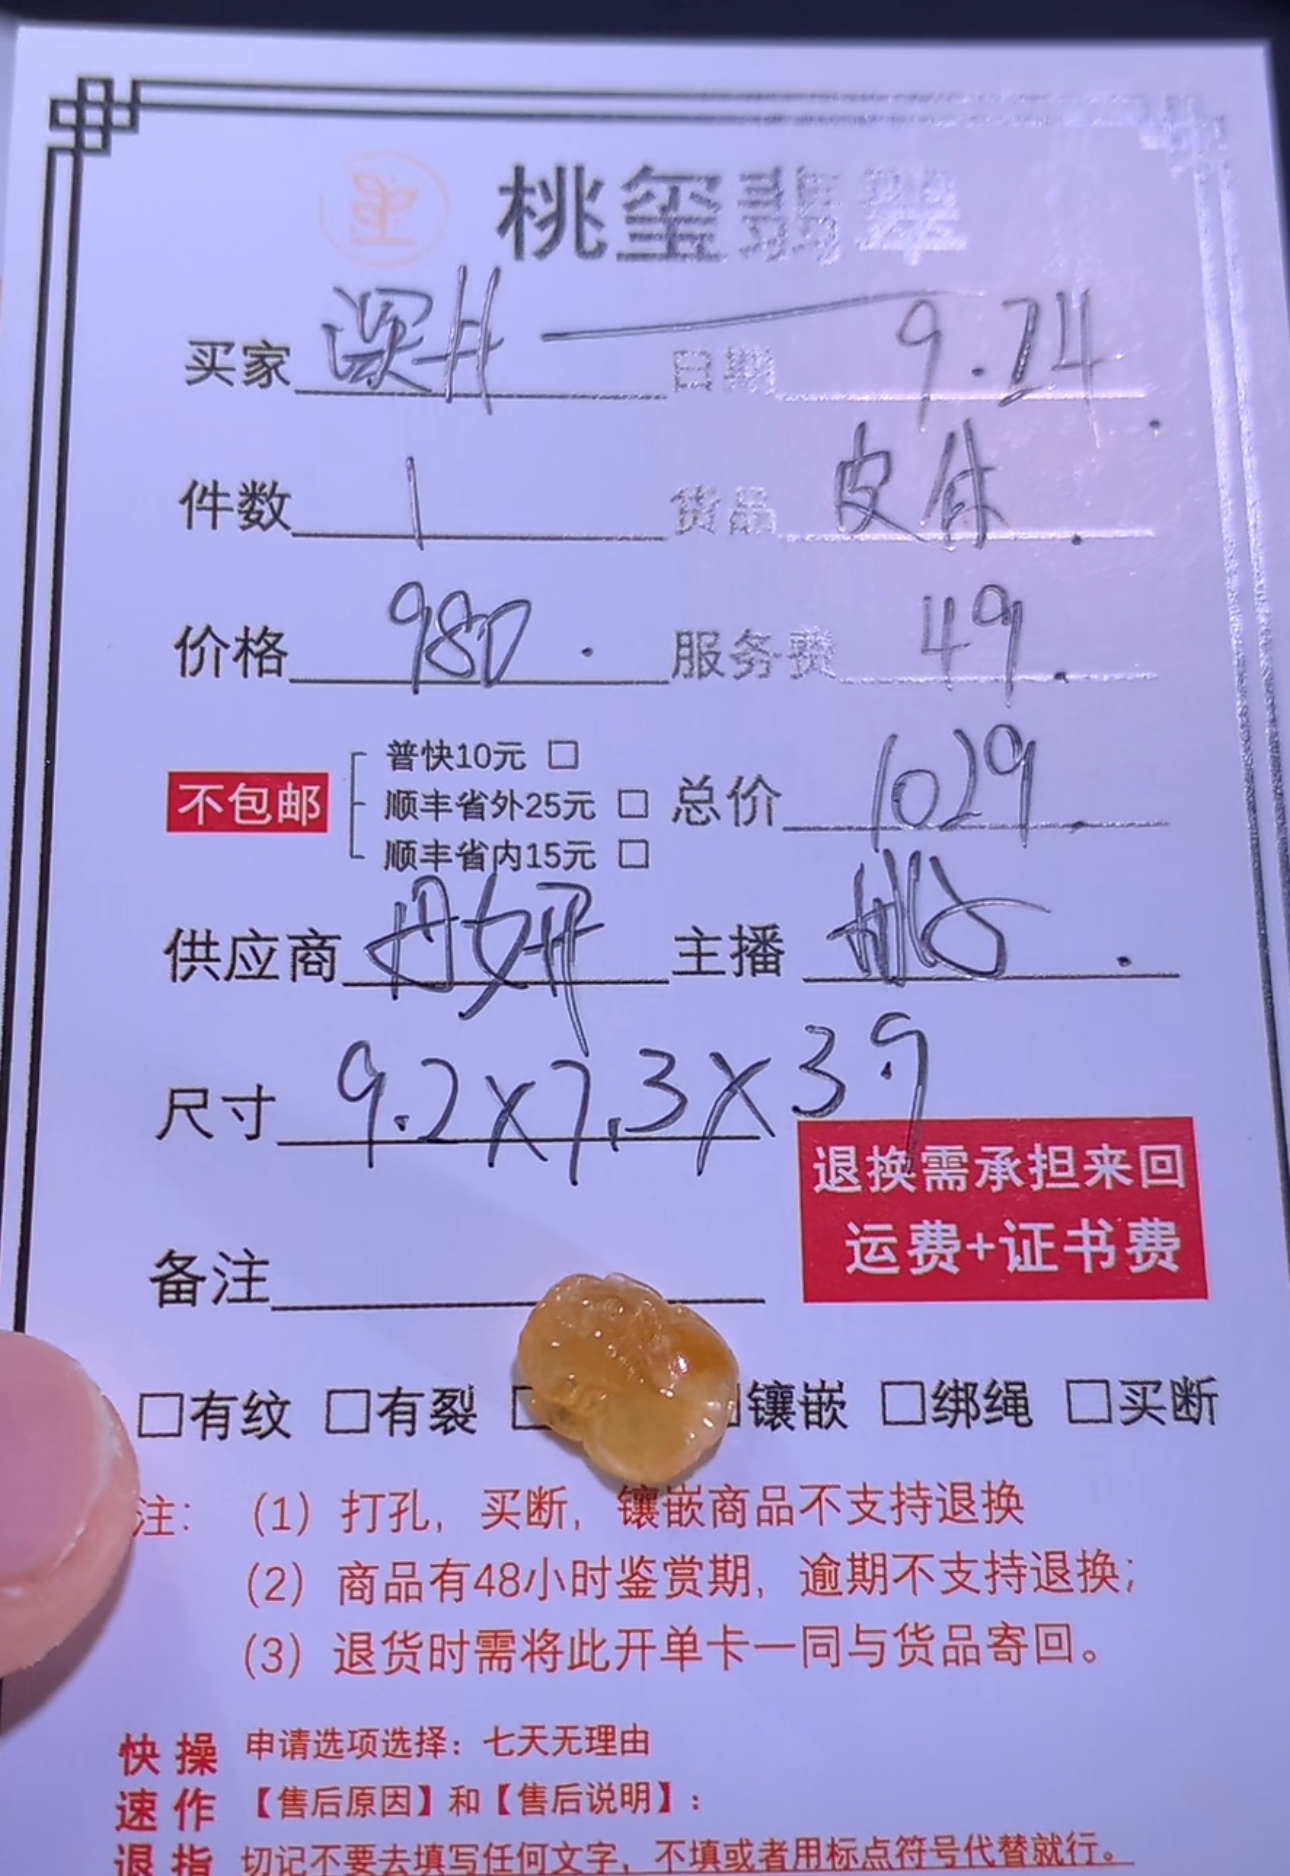 桃玺翡翠
买家 深井 日期 9.24
件数 1 货品 皮休
价格 980. 服务费 49.
普快10元
不包邮 顺丰省外25元 总价 1029.
顺丰省内15元
供应商 丹妍 主播
尺寸 9.2×7.3×3.9
退换需承担来回
运费+证书费
备注
有纹 有裂 镶嵌 绑绳 买断
注: (1) 打孔, 买断, 镶嵌商品不支持退换
(2) 商品有48小时鉴赏期, 逾期不支持退换;
(3) 退货时需将此开单卡一同与货品寄回。
快操 申请选项选择: 七天无理由
速作 【售后原因】和【售后说明】:
退指 切记不要去填写任何文字, 不填或者用标点符号代替就行。